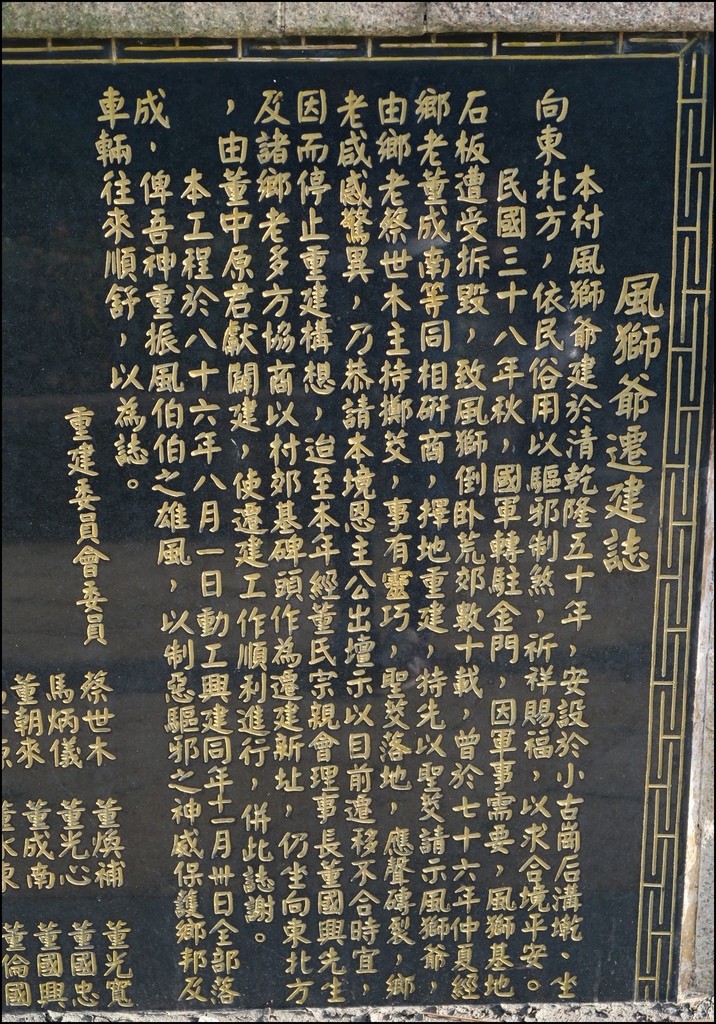 風獅爺遷建誌
本村風獅爺建於清乾隆五十年，安設於小古崗后溝墘、坐
向東北方，依民俗用以驅邪制煞，祈祥賜福，以求合境平安。
民國三十八年秋，國軍轉駐金門，因軍事需要，風獅基地
石板遭受拆毀，致風獅倒臥荒郊數十載，曾於七十六年仲夏經
鄉老董成南等同相研商，擇地重建，特先以聖筊請示風獅爺，
由鄉老蔡世木主持擲筊，事有靈巧，聖筊落地，應聲磚裂，鄉
老咸感驚異，乃恭請本境恩主公出壇示以目前遷移不合時宜，
因而停止重建構想，迨至本年經董氏宗親會理事長董國興先生
及諸鄉老多方協商以村郊基碑頭作為遷建新址，仍坐向東北方
，由董中原君獻闢建，使遷建工作順利進行，併此誌謝。
本工程於八十六年八月一日動工興建同年十一月卅日全部落
成，俾吾神重振風伯伯之雄風，以制惡驅邪之神威保護鄉邦及
車輛往來順舒，以為誌。
重建委員會委員
蔡世木 董煥補 董光寬
馬炳儀 董光心 董國忠
董朝來 董成南 董國興
董倫國